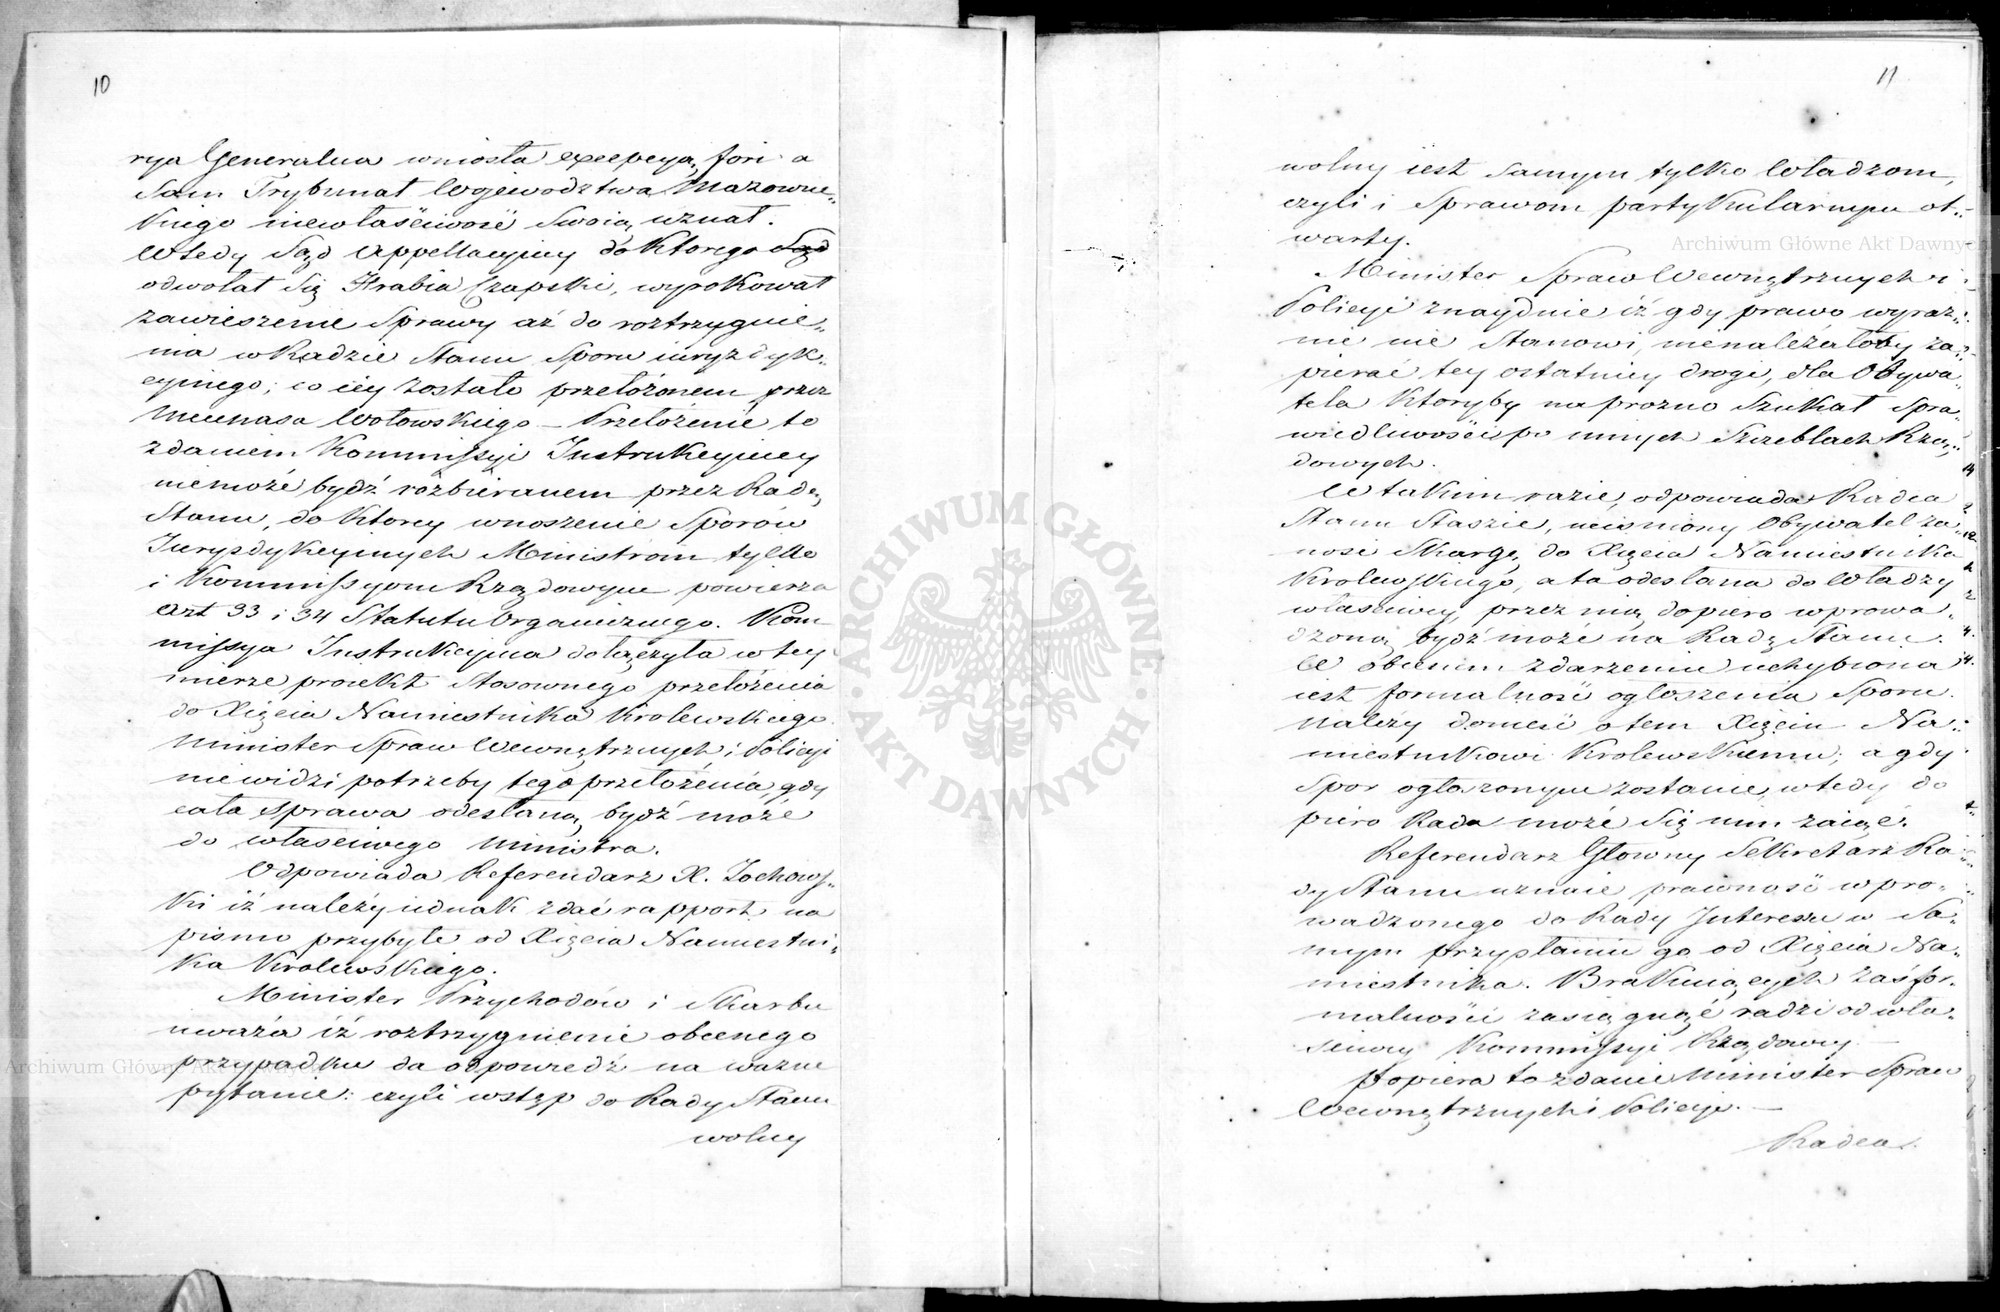 10
rya Generalna wniosła excepcyą fori a
Sam Trybunał Województwa Mazowie„
„kiego niewłaściwość Swoią uznał.
Wtedy Sąd Appellacyiny do ktorego Sąd
odwołał Się Hrabia Czapski, wyrokował
zawieszenie Sprawy aż do roztrzygnie„
nia w Radzie Stanu Sporu iuryzdyk„
cyinego; co iey zostało przełożonem przez
Mecenasa Wołowskiego – Przełożenie to
zdaniem Kommissyi Instrukcyiney
niemoże bydź rozbieranem przez Radę
Stanu, do ktorey wnoszenie Sporów
Jurysdykcyinych Ministrom tylko
i Kommissyom Rządowym powierza
Art 33 i 34 Statutu Organicznego. Kom
missya Instrukcyina dołączyła w tey
mierze proiekt Stosownego przełożenia
do Xięcia Namiestnika Krolewskiego.
Minister Spraw Wewnętrznych i Policyi
nie widzi potrzeby tego przełożenia, gdy
cała Sprawa odesłaną bydź może
do właściwego Ministra.
Odpowiada Referendarz X. Żochows„
ki iż należy iednak zdać rapport na
pismo przybyłe od Xięcia Namiestni„
ka Krolewskiego.
Minister Przychodów i Skarbu
uważa iż roztrzygnienie obecnego
przypadku da odpowiedź na ważne
pytanie: czyli wstęp do Rady Stanu
wolny
11
wolny iest Samym tylko Władzom,
czyli i Sprawom partykularnym ot„
warty.
Minister Spraw Wewnętrznych i
Policyi znaydnie iż gdy prawo wyraz„
nie nie Stanowi, nienależałoby za„
pierać tey ostatniey drogi, dla Obywa„
tela Ktoryby naprozno Szukał Spra„
wiedliwości po innych Szczeblach Rzą„
dowych.
W takim razie, odpowiada Radca
Stanu Staszic, uciśniony Obywatel za„
nosi Skargę do Xięcia Namiestnika
Krolewskiego, a ta odesłana do Władzy
właściwey, przez nią dopiero wprowa„
dzoną bydź może na Radę Stanu.
W obecnem zdarzeniu uchybiona
iest formalność ogłoszenia Sporu.
Należy donieść o tem Xięciu Na„
miestnikowi Krolewskiemu; a gdy
Spor ogłozonym zostanie, wtedy do
piero Rada może Się nim zaiąć.
Referendarz Głowny Sekretarz Ra„
dy Stanu uznaie prawność wpro„
wadzonego do Rady Interesu w Sa„
mym przysłaniu go od Xięcia Na„
miestnika. Brakuiących zaś for„
malności zasiągnąć radzi od wła„
ściwey Kommissyi Rządowey. —
Popiera to zdanie Minister Spraw
Wewnętrznych i Policyi. —
Radca
Archiwum Główne Akt Dawnych
Archiwum Główne Akt Dawnych
ARCHIWUM GŁÓWNE
AKT DAWNYCH